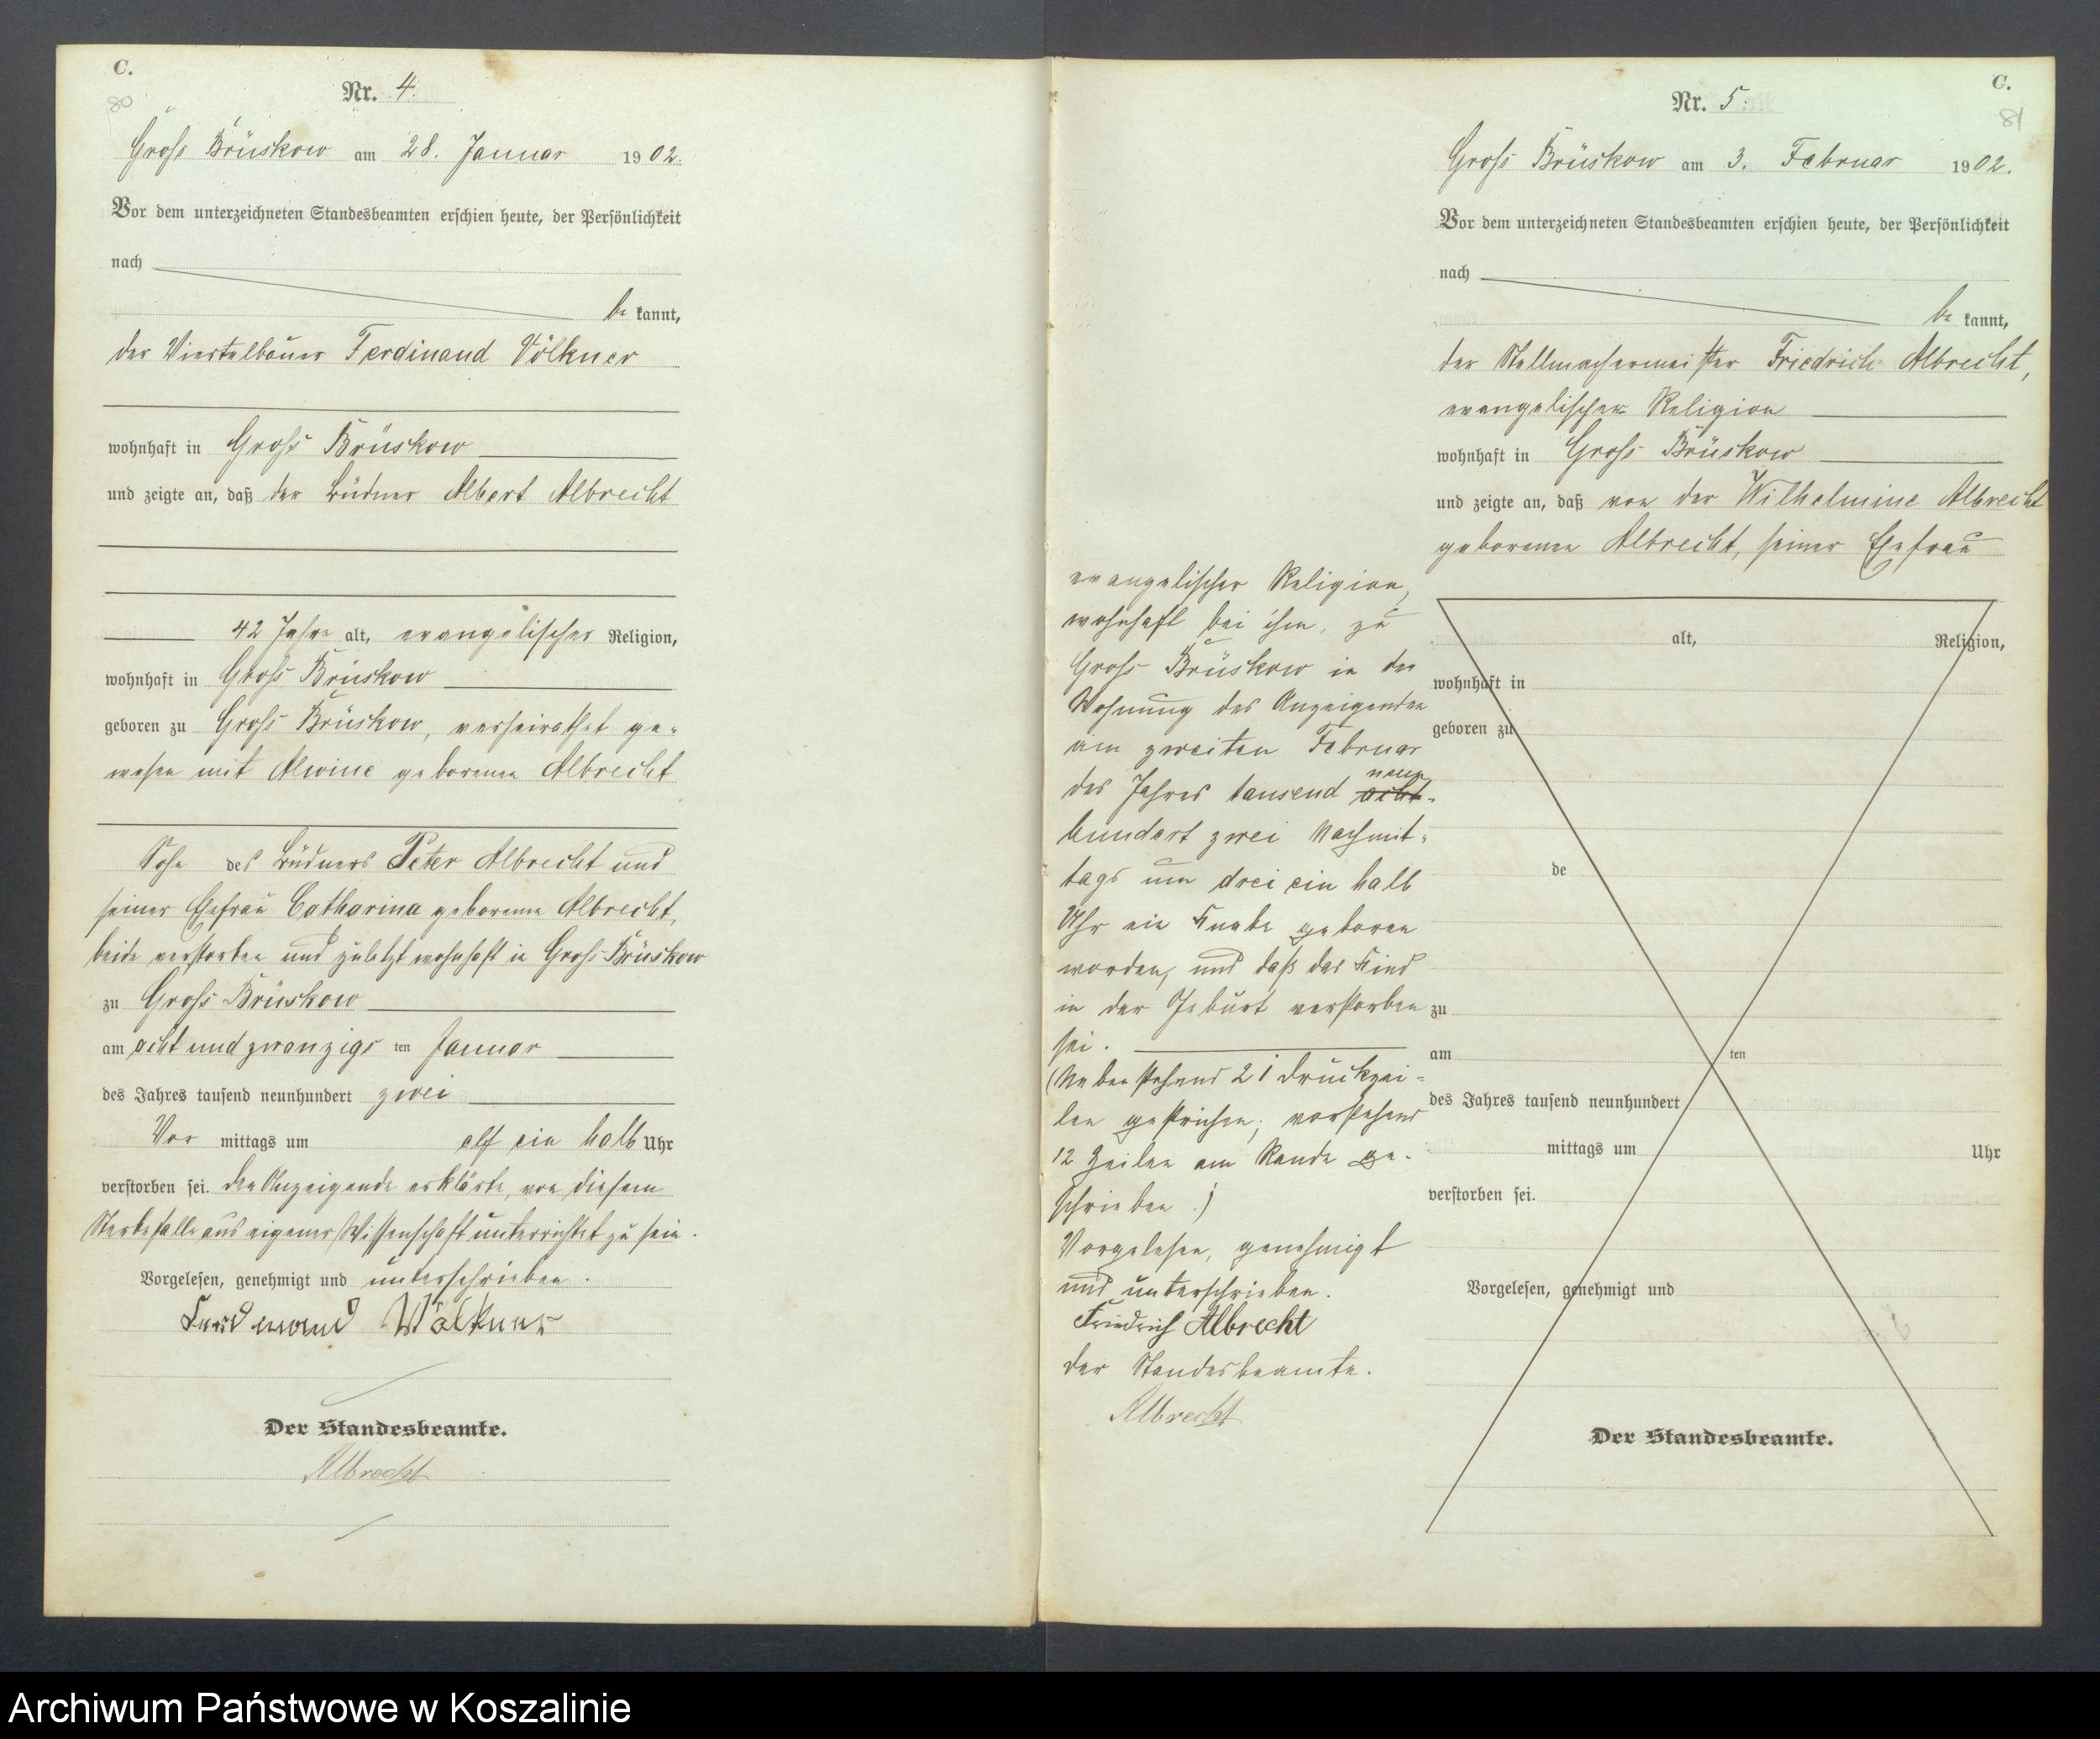 C.
80
Nr. 4.
Groß Brüskow am 28. Januar 1902.
Vor dem unterzeichneten Standesbeamten erschien heute, der Persönlichkeit
nach
be kannt,
der Viertelbauer Ferdinand Völkner
wohnhaft in Groß Brüskow
und zeigte an, daß der Büdner Albert Albrecht
42 Jahre alt, evangelischer Religion,
wohnhaft in Groß Brüskow
geboren zu Groß Brüskow, verheirathet ge-
wesen mit Alwine geborenen Albrecht
Sohn des Büdners Peter Albrecht und
seiner Ehefrau Catharina geborenen Albrecht,
beide verstorben und zuletzt wohnhaft in Groß Brüskow
zu Groß Brüskow
am acht und zwanzigs ten Januar
des Jahres tausend neunhundert zwei
Vor mittags um elf ein halb Uhr
verstorben sei. Der Anzeigende erklärte, von diesem
Sterbefalle aus eigener Wissenschaft unterrichtet zu sein.
Vorgelesen, genehmigt und unterschrieben.
Ferdinand Völkner
Der Standesbeamte.
Albrecht
C.
81
Nr. 5.
Groß Brüskow am 3. Februar 1902.
Vor dem unterzeichneten Standesbeamten erschien heute, der Persönlichkeit
nach
be kannt,
der Stellmachermeister Friedrich Albrecht,
evangelischer Religion
wohnhaft in Groß Brüskow
und zeigte an, daß von der Wilhelmine Albrecht
geborenen Albrecht, seiner Ehefrau
evangelischer Religion,
wohnhaft bei ihm, zu
Groß Brüskow in der
Wohnung des Anzeigenden
am zweiten Februar
des Jahres tausend acht- neun
hundert zwei Nachmit-
tags um drei ein halb
Uhr ein Knabe geboren
worden, und daß das Kind
in der Geburt verstorben
sei.
(Nebenstehend 21 Druckzei-
len gestrichen; vorstehend
12 Zeilen am Rande ge-
schrieben.)
Vorgelesen, genehmigt
und unterschrieben.
Friedrich Albrecht
Der Standesbeamte.
Albrecht
alt, Religion,
wohnhaft in
geboren zu
de
zu
am ten
des Jahres tausend neunhundert
mittags um Uhr
verstorben sei.
Vorgelesen, genehmigt und
Der Standesbeamte.
Archiwum Państwowe w Koszalinie